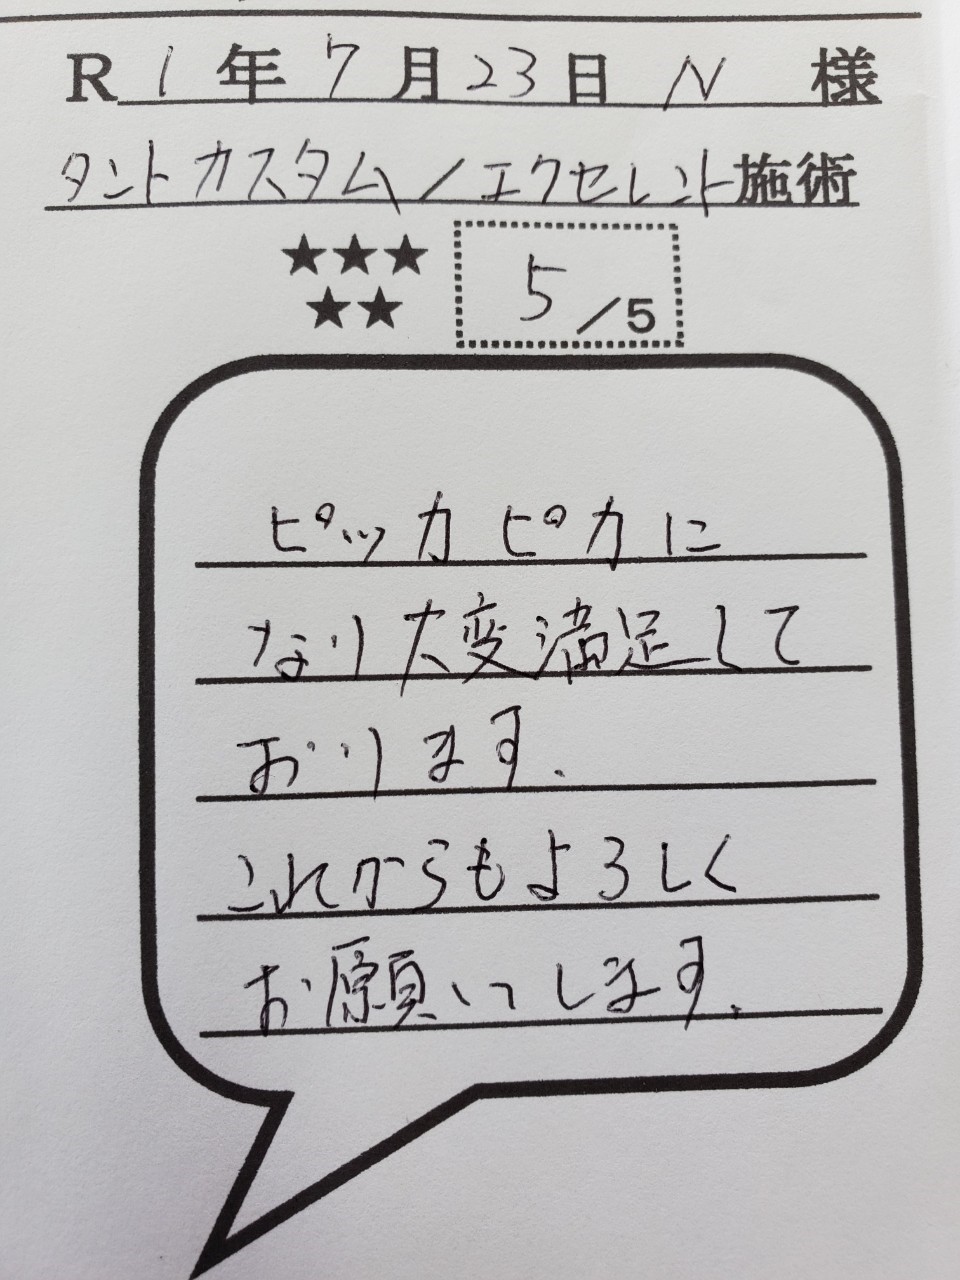 R 1 年 7 月 23 日 N 様
タントカスタム／エクセレント施術
★★★
★★
5／5
ピッカピカに
なり大変満足して
おります.
これからもよろしく
お願いします.